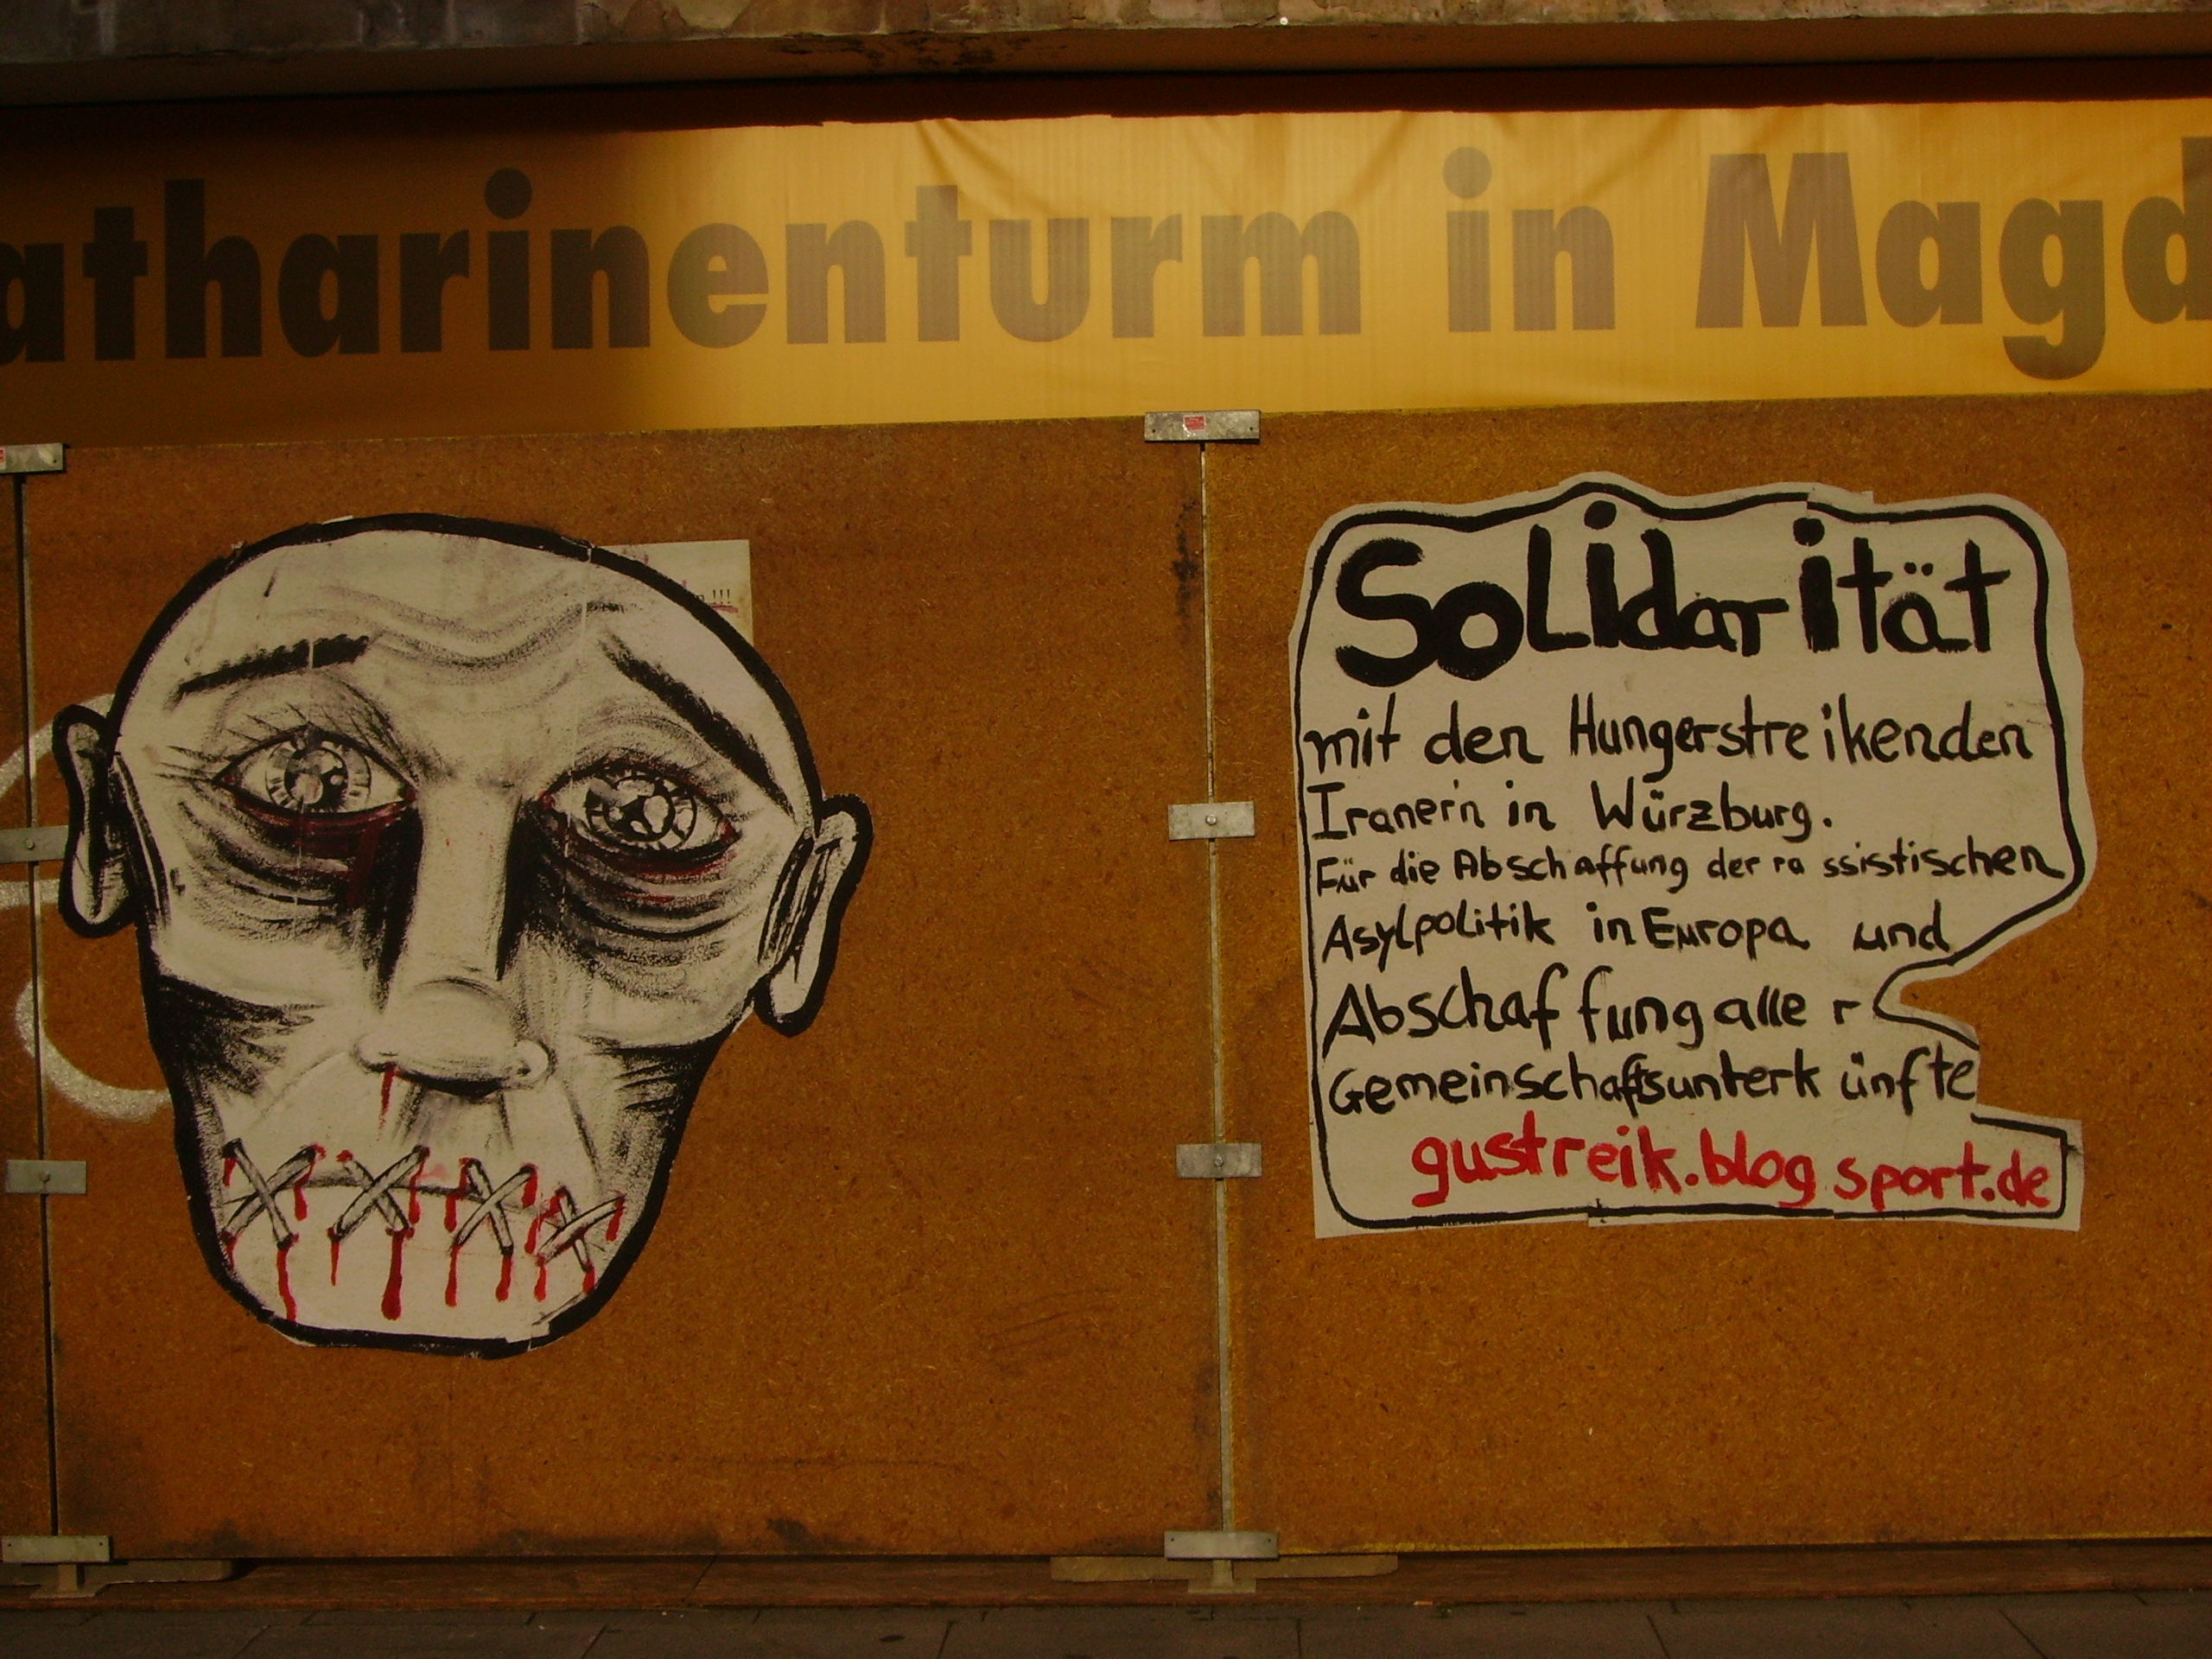 atharinenturm in Magd
!!!
Solidarität
mit den Hungerstreikenden
Iraner'n in Würzburg.
Für die Abschaffung der ra ssistischen
Asylpolitik in Europa und
Abschaffung alle r
Gemeinschaftsunterk ünfte
gustreik.blog sport.de